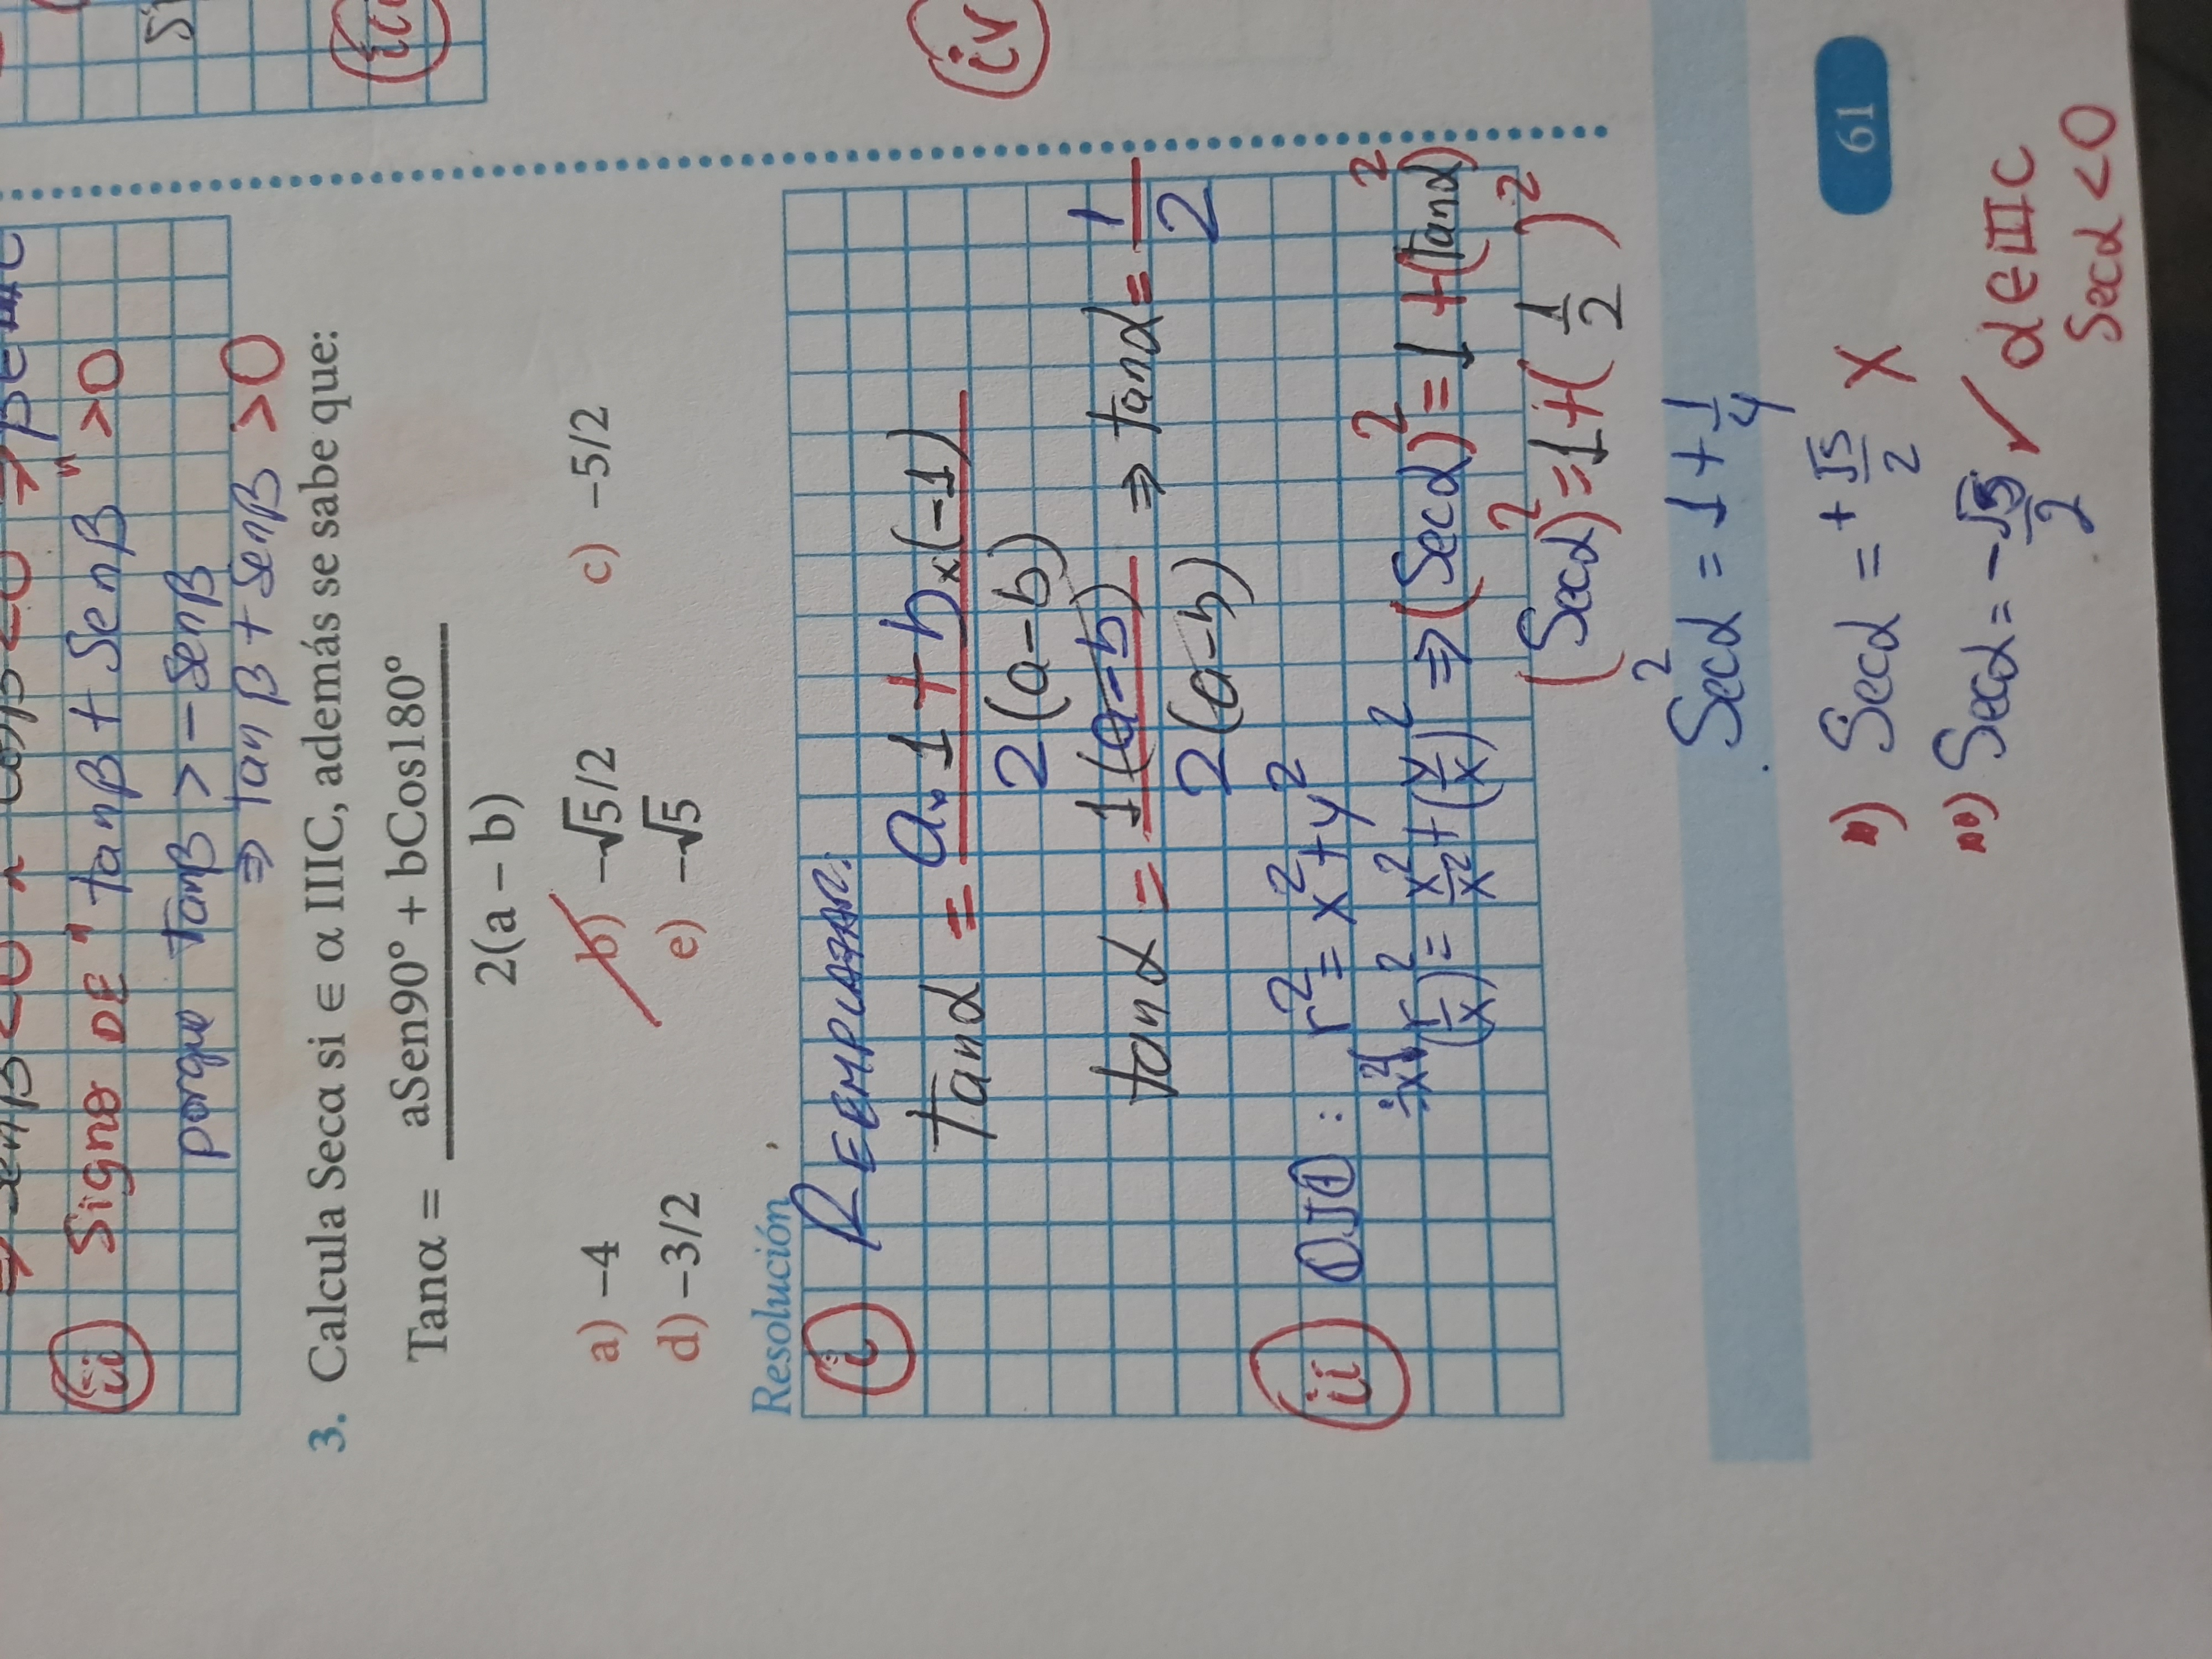 ⇒ senβ < 0 ∧ cosβ < 0 ⇒ β ∈ IIIC
ii Signo DE "tanβ + Senβ" > 0
porque Tanβ > - Senβ
⇒ tanβ + Senβ > 0
3. Calcula Secα si ∈ α IIIC, además se sabe que:
Tanα = (aSen90° + bCos180°) / 2(a – b)
a) –4 b) –√5/2 c) –5/2
d) –3/2 e) –√5
Resolución
i REEMPLAZAR:
tanα = (a.1 + b x(-1)) / 2(a-b)
tanα = 1(a-b) / 2(a-b) ⇒ tanα = 1/2
ii OJO : r² = x² + y²
÷x² ↓ (r/x)² = x²/x² + (y/x)² ⇒ (Secα)² = 1 + (tanα)²
(Secα)² = 1 + (1/2)²
Sec²α = 1 + 1/4
Secα = + √5/2 X
61
Secα = - √5/2 ✓ α ∈ IIIC
Secα < 0
iii
iv